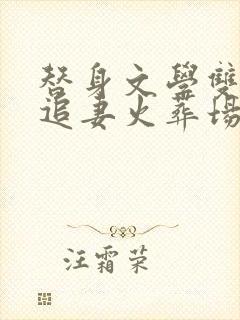 替身文學雙
追妻火葬場
汪霜榮